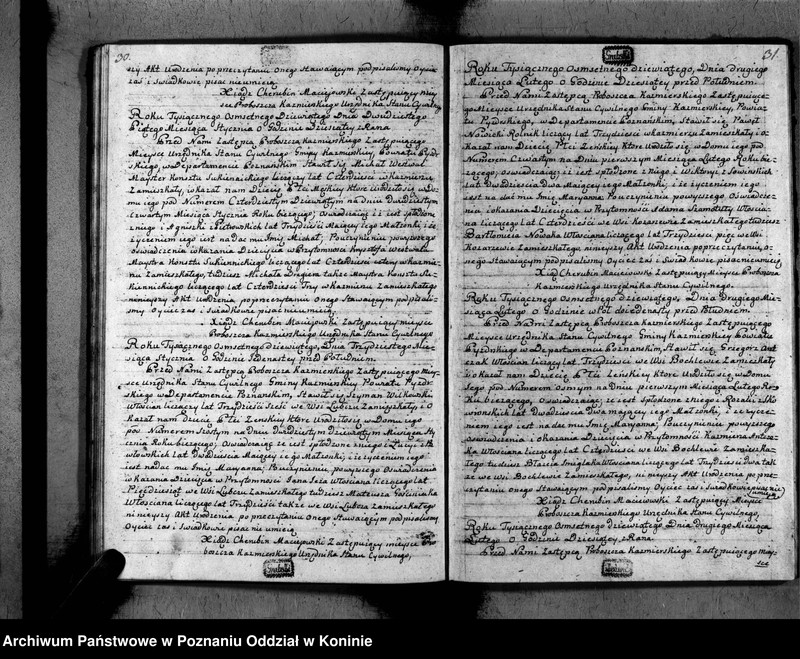 30.
szy Akt Urodzenia po przeczytaniu onego Stawaiącym podpisalismy Oyciec
zaś i Swiadkowie pisać nieumieią.
Xiądz Cherubin Maciejowski Zastępuiący miey
sce Proboszcza Kazmirskiego Urzędnika Stanu Cywilnego
Roku Tysiącznego Osmsetnego Dziewiątego Dnia Dwudziestego
Piątego Miesiąca Stycznia o Godzinie Dziesiątey z Rana
Przed Nami Zastępcą Proboszcza Kazmierskiego Zastępuiącego
Mieysce Urzędnika Stanu Cywilnego Gminy Kazmirskiey, Powiatu Pyzdr-
skiego, w Departamencie Poznanskim Stawił Się Michał
Mayster Konsztu Sukiennickiego Liczący lat Czterdzieści w Kazmierzu
Zamieszkały, i okazał nam Dziecię Płci Męskiey które urodziło się w Do-
mu iego pod Numerem Czterdziestym Dziewiątym na dniu Dwudziestym
Czwartym Miesiąca Stycznia Roku bieżącego; Oswiadczaiąc iż iest spłodzone
z niego i Agniszki Piotrowskich lat Trzydzieści Maiącey iego Małżonki i że
życzeniem iego iest nadać mu Imię Michał; Po uczynieniu powyższego
oswiadczenia i okazania Dziecięcia w Przytomności Krysztofa
Maystra Konsztu Sukiennickiego liczącego lat Czterdzieści cztery w Kazmie-
rzu Zamieszkałego, tudzież Michała także Maystra Konsztu Su-
kiennickiego liczącego lat Czterdzieści Trzy w Kazmierzu Zamieszkałego
ninieyszy Akt Urodzenia po przeczytaniu onego Stawaiącym podpisali-
smy Oyciec zaś i Swiadkowie pisać nieumieią.
Xiądz Cherubin Maciejowski Zastępuiący mieysce
Proboszcza Kazmierskiego Urzędnika Stanu Cywilnego
Roku Tysiącznego Osmsetnego Dziewiątego, Dnia Trzydziestego Mie-
siąca Stycznia o Godzinie Jedenastey przed Południem.
Przed Nami Zastępcą Proboszcza Kazmierskiego Zastępuiącego miey-
sce Urzędnika Stanu Cywilnego Gminy Kazmierskiey Powiatu Pyzdr-
skiego w Departamencie Poznanskim, Stawił się Szyman Wilkowski
Włościan liczący lat Trzydzieści Sześć we Wsi Lubczu Zamieszkały, i O
kazał nam Dziecię Płci Zenskiey które Urodziło się w Domu iego
pod Numerem Szóstym na Dniu Dwudziestym Dziewiątym Miesiąca Sty-
cznia Roku bieżącego; Oswiadczaiąc że iest spłodzone z niego i Łucyi z
włowskich lat Dwadzieścia Maiącey iego Małżonki, i że życzeniem iego
iest nadać mu Imię Maryanna; Po uczynieniu, powyższego Oświadczenia
i okazania Dziecięcia w Przytomności Jana Włościana liczącego lat
Pięćdziesiąt we Wsi Lubczu Zamieszkałego tudzież Mateusza
Włościana liczącego lat Trzydzieści także we Wsi Lubczu Zamieszkałego
ninieyszy Akt Urodzenia po przeczytaniu Onego Stawaiącym podpisalismy
Oyciec zaś i Swiadkowie pisać nie umieią
Xiądz Cherubin Maciejowski Zastępuiący mieysce Pro-
boszcza Kazmierskiego Urzędnika Stanu Cywilnego,
31
Roku Tysiącznego Osmsetnego dziewiątego, Dnia drugiego
Miesiąca Lutego o Godzinie Dziesiątey przed Południem.
Przed Nami Zastępcą Proboszcza Kazmierskiego Zastępuiące-
go Mieysce Urzędnika Stanu Cywilnego Gminy Kazmierskiey, Powia-
tu Pyzdrskiego, w Departamencie Poznańskim, Stawił się Paweł
Nowicki Rolnik liczący lat Trzydzieści w Kazmierzu Zamieszkały i o-
kazał nam Dziecię Płci Zeńskiey które Urodziło się w Domu iego pod
Numerem Czwartym na Dniu pierwszym Miesiąca Lutego Roku bie-
żącego; oswiadczaiąc iż iest spłodzone z niego i Wiktoryi z Sowinskich
lat Dwadzieścia Dwa Maiącey iego Małżonki; i że życzeniem iego
iest nadać mu Imię Maryanna; Po uczynieniu powyższego Oświadcze-
nia i okazania Dziecięcia, w Przytomności Adama Szamotuły Włościa-
na liczącego lat Czterdzieści we Wsi Kozarzewie Zamieszkałego tudzież
Bartłomieia Nowaka Włościana liczącego lat Trzydzieści pięć we Wsi
Kozarzewie Zamieszkałego, ninieyszy Akt Urodzenia po przeczytaniu o-
nego Stawaiącym podpisalismy Oyciec zaś i Swiadkowie pisać nieumieią
Xiądz Cherubin Maciejowski Zastępuiący Mieysce Proboszcza
Kazmierskiego Urzędnika Stanu Cywilnego.
Roku Tysiącznego Osmsetnego dziewiątego, Dnia Drugiego Mie-
siąca Lutego o Godzinie wpół do iedenastey przed Południem.
Przed Nami Zastępcą Proboszcza Kazmierskiego Zastępuiącego
Mieysce Urzędnika Stanu Cywilnego Gminy Kazmierskiey Powiatu
Pyzdrskiego w Departamencie Poznanskim, Stawił się Grzegorz
czak Włościan liczący lat Trzydzieści we Wsi Bochlewie Zamieszkały
i okazał nam Dziecię Płci Zeńskiey które Urodziło się w Domu
iego pod Numerem Osmym na Dniu pierwszym Miesiąca Lutego Ro-
ku bieżącego, Oswiadczaiąc że iest spłodzone z niego i Rozalii z
wronskich lat Dwadzieścia Dwa maiący iego Małżonki, i że życze-
niem iego iest nadać mu Imię Maryanna; Po uczynieniu powyższego
oswiadczenia i okazania Dziecięcia w Przytomności Kazmierza
Włościana liczącego lat Czterdzieści we Wsi Bochlewie Zamieszka-
łego tudzież Błażeia Smiglaka Włościana liczącego lat Trzydzieści dwa tak
że we Wsi Bochlewie Zamieszkałego, ninieyszy Akt Urodzenia po prze-
czytaniu onego Stawaiącym podpisalismy Oyciec zaś i Swiadkowie pisać nie
umieią
Xiądz Cherubin Maciejowski Zastępuiący Mieysce
Proboszcza Kazmierskiego Urzędnika Stanu Cywilnego,
Roku Tysiącznego Osmsetnego dziewiątego Dnia drugiego Miesiąca
Lutego o Godzinie Dziesiątey z Rana.
Przed Nami Zastępcą Proboszcza Kazmierskiego Zastępuiącego miey-
sce
Archiwum Państwowe w Poznaniu Oddział w Koninie